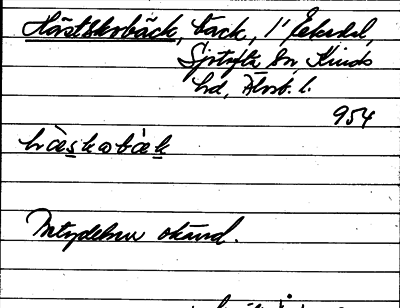 Hästskobäck, back, i Ekedal,
Sn, Kinds
hd, Älvsb. l.
954
hæskobæk
Betydelsen okänd.